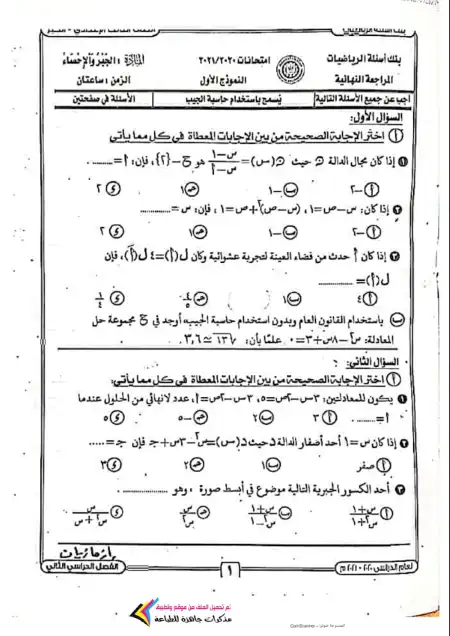 بنك أسئلة الرياضيات
المراجعة النهائية
امتحانات ٢٠٢٠/٢٠٢١
النموذج الأول
المادة: الجبر والإحصاء
الزمن: ساعتان
أجب عن جميع الأسئلة التالية يُسمح باستخدام حاسبة الجيب الأسئلة في صفحتين
السؤال الأول:
أ اختر الإجابة الصحيحة من بين الإجابات المعطاة فى كل مما يأتى
١ إذا كان مجال الدالة ن حيث ن(س) = (س-١)/(س-أ) هو ح-{٢}، فإن: أ = ..........
أ -٢ ب -١ ج ١ د ٢
٢ إذا كان: س-ص=١، (س-ص)٢+ص=١، فإن: س = ..............
أ -٢ ب -١ ج ١ د ٢
٣ إذا كان أ حدث من فضاء العينة لتجربة عشوائية وكان ل(أ)=٤ ل(أَ)، فإن
ل(أ) = ................
أ ٤ ب ١ د ١/٤
ب باستخدام القانون العام وبدون استخدام حاسبة الجيب، أوجد في ح مجموعة حل
المعادلة: س٢-٨س+٣=٠ علمًا بأن: √١٣ ≃ ٣,٦
السؤال الثاني:
أ اختر الإجابة الصحيحة من بين الإجابات المعطاة فى كل مما يأتى:
١ يكون للمعادلتين: ٣س-٢ص=٥، ٣س-٢ص=أ، عدد لانهائي من الحلول عندما
أ = ..........
أ ٣ ب ٢ ج -٥ د ٥
٢ إذا كان س=١ أحد أصفار الدالة د حيث د(س)=س٢-٣س+ج فإن ج=.....
أ صفر ب ١ ج ٢ د ٣
٣ أحد الكسور الجبرية التالية موضوع في أبسط صورة، وهو ..................
أ (س+١)/(س٢+١) ب (س+١)/(س٢-١) ج س/س٢ د س/(س٢+س)
لعام الدراسي ٢٠٢٠-٢٠٢١م
١
الفصل الدراسي الثاني
تم تحميل الملف من موقع وتطبيق
مذكرات جاهزة للطباعة
CamScanner